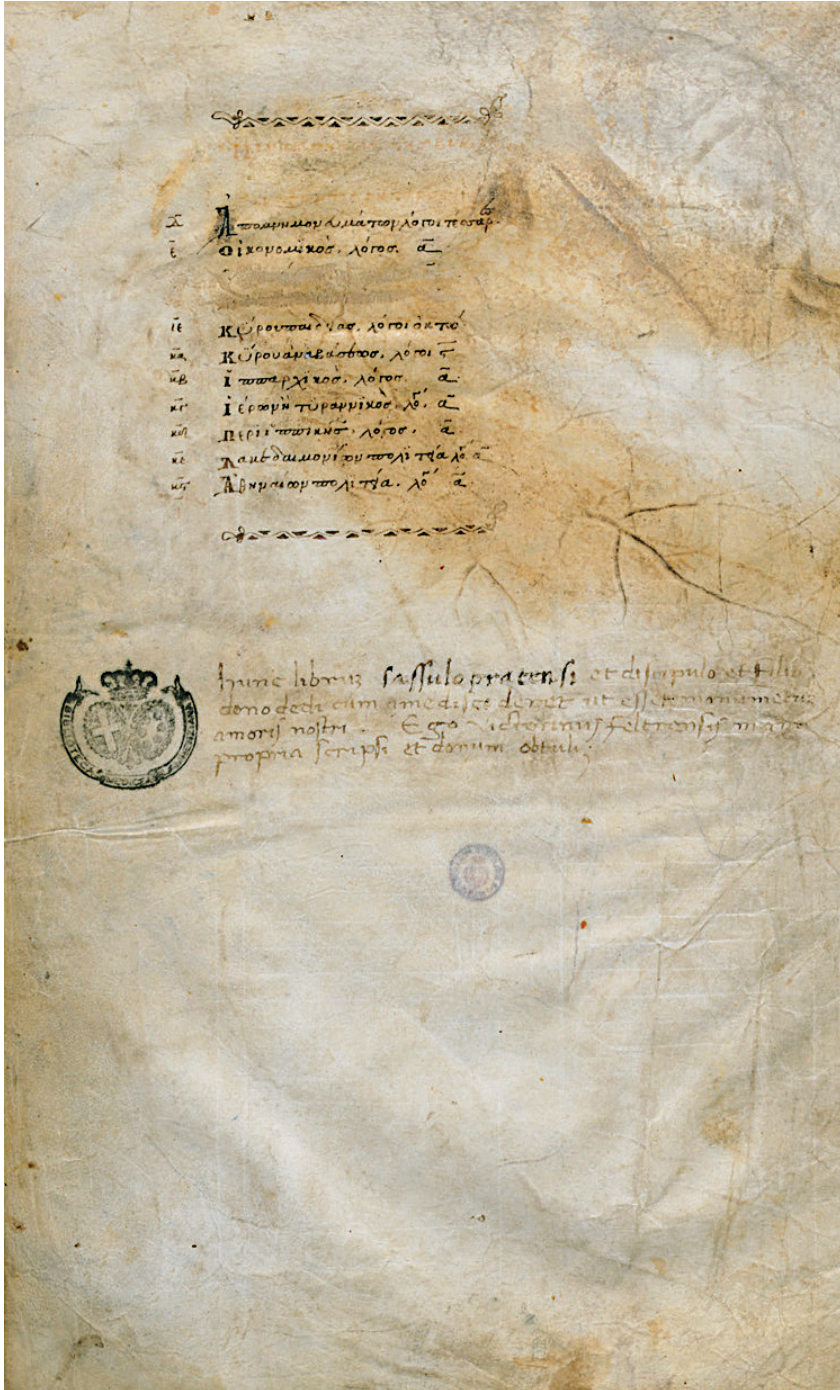 Ἀπομνημονευμάτων λόγοι τέσσαρ
ε̄ Οἰκονομικὸς. λόγος. ᾱ
ιε Κύρου παιδείας. λόγοι ὀκτώ
κα Κύρου ἀναβάσεως. λόγοι ς̄
κβ Ἱππαρχικὸς. λόγος. ᾱ
κγ Ἱέρων ἢ τυραννικὸς. λό. ᾱ
κδ Περὶ ἱππικῆς. λόγος. ᾱ
κε Λακεδαιμονίων πολιτεία λό ᾱ
κς Ἀθηναίων πολιτεία. λό ᾱ
hunc librum Sassulo pratensi et discipulo et filio
dono dedi cum a me discederet ut esset monumentum
amoris nostri. Ego Victorinus Feltrensis manu
propria scripsi et donum obtuli;